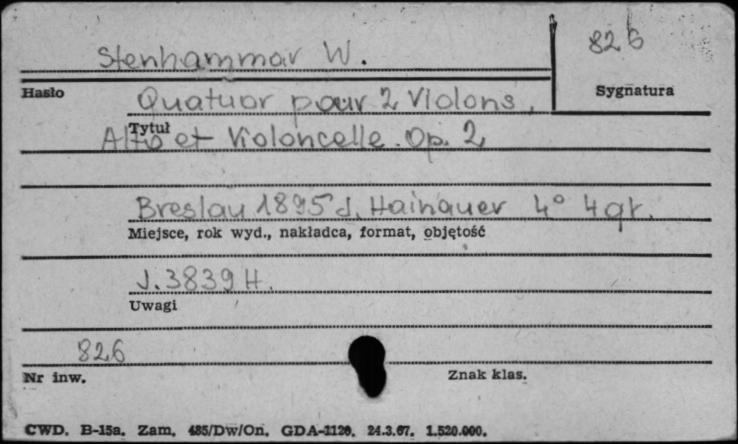 Stenhammar W.
826
Hasło
Sygnatura
Quatuor pour 2 Violons,
Tytuł
Alto et Violoncelle. Op. 2
Breslau 1895 J. Hainauer 4° 4 gł.
Miejsce, rok wyd., nakładca, format, objętość
J. 3839 H.
Uwagi
826
Nr inw.
Znak klas.
CWD. B-15a. Zam. 485/Dw/On. GDA-1120. 24.3.67. 1.520.000.